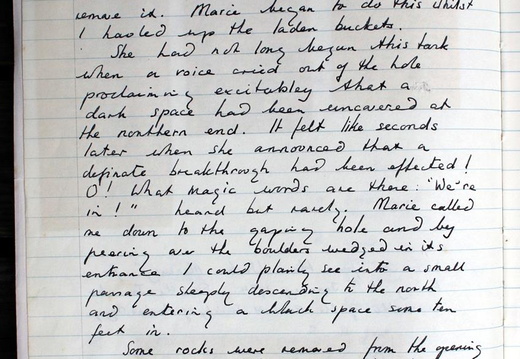 remove it. Marie began to do this whilst
I hauled up the laden buckets.
She had not long begun this task
when a voice cried out of the hole
proclaiming excitabley that a
dark space had been uncovered at
the northern end. It felt like seconds
later when she announced that a
definate breakthrough had been effected!
O! What magic words are there: "We're
in!" heard but rarely. Marie called
me down to the gaping hole and by
peering over the boulders wedged in its
entrance I could plainly see into a small
passage steeply descending to the north
and entering a black space some ten
feet in.
Some rocks were removed from the opening